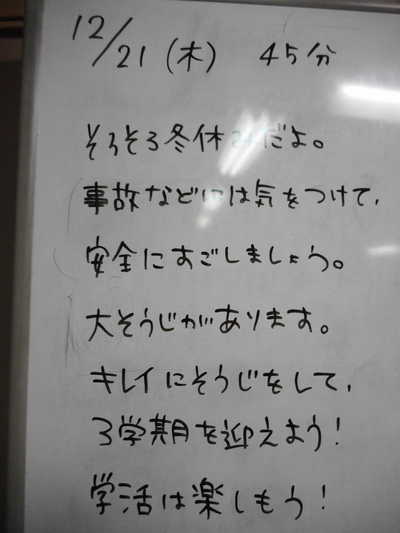 12/21(木) 45分
そろそろ冬休みだよ。
事故などには気をつけて、
安全にすごしましょう。
大そうじがあります。
キレイにそうじをして、
3学期を迎えよう!
学活は楽しもう!